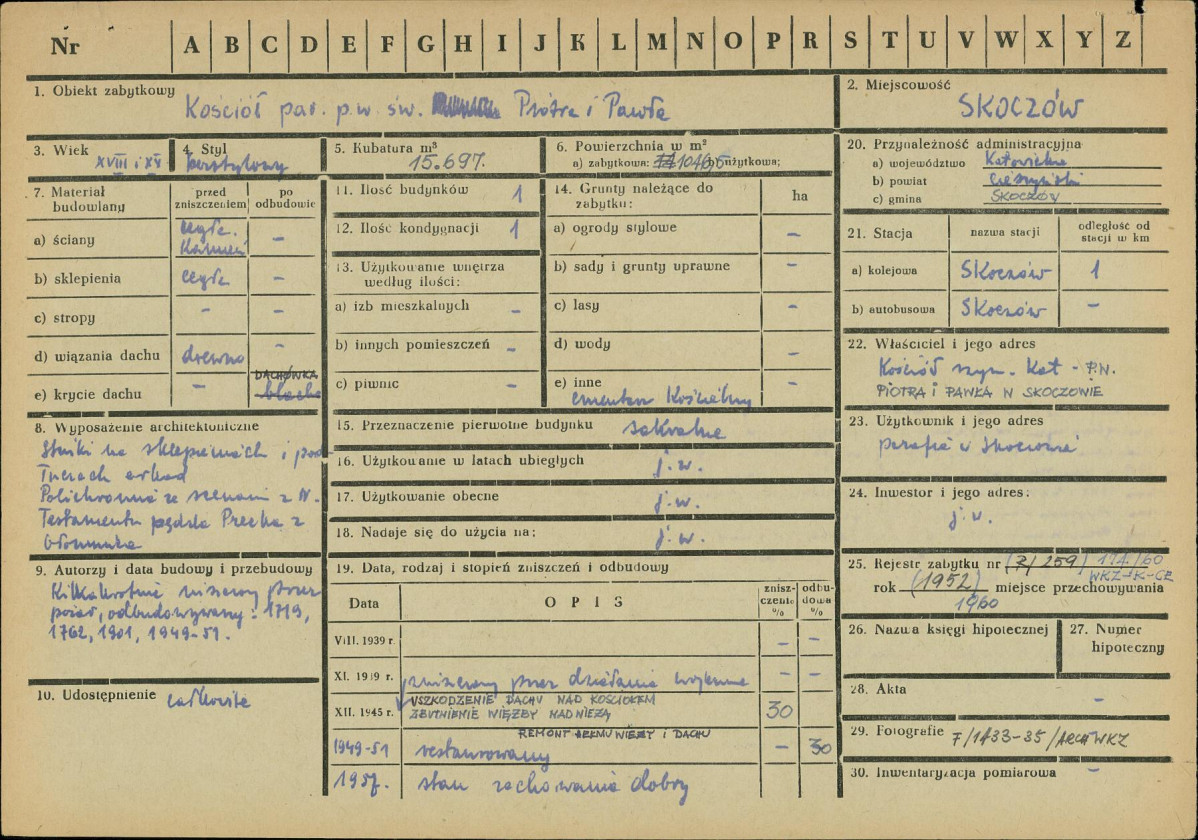 Nr A B C D E F G H I J K L M N O P R S T U V W X Y Z
1. Obiekt zabytkowy
Kościół par. p.w. św. Piotra i Pawła
2. Miejscowość
SKOCZÓW
3. Wiek
XVIII i XX
4. Styl
bezstylowy
5. Kubatura m³
15.697.
6. Powierzchnia w m²
a) zabytkowa: 1046, b) użytkowa;
20. Przynależność administracyjna
a) województwo Katowickie
b) powiat Cieszyński
c) gmina SKOCZÓW
7. Materiał budowlany
przed zniszczeniem
po odbudowie
a) ściany cegła. Kamień –
b) sklepienia cegła –
c) stropy – –
d) wiązania dachu drewno –
e) krycie dachu – DACHÓWKA blacha
11. Ilość budynków 1
12. Ilość kondygnacji 1
13. Użytkowanie wnętrza według ilości:
a) izb mieszkalnych –
b) innych pomieszczeń –
c) piwnic –
14. Grunty należące do zabytku: ha
a) ogrody stylowe –
b) sady i grunty uprawne –
c) lasy –
d) wody –
e) inne –
cmentarz Kościelny
21. Stacja
nazwa stacji
odległość od stacji w km
a) kolejowa Skoczów 1
b) autobusowa Skoczów –
22. Właściciel i jego adres
Kościół rzym. Kat - P.W.
PIOTRA I PAWŁA W SKOCZOWIE
8. Wyposażenie architektoniczne
Stiuki na sklepieniach i pod-
łuczach arkad
Polichromia ze scenami z N.
Testamentu pędzla Precka z
Ołomuńca
15. Przeznaczenie pierwotne budynku sakralne
16. Użytkowanie w latach ubiegłych j.w.
17. Użytkowanie obecne j.w.
18. Nadaje się do użycia na; j.w.
23. Użytkownik i jego adres
parafia w Skoczowie
24. Inwestor i jego adres:
j.w.
9. Autorzy i data budowy i przebudowy
Kilkakrotnie niszczony przez
pożar, odbudowywany: 1719,
1762, 1901, 1949-51.
10. Udostępnienie całkowite
19. Data, rodzaj i stopień zniszczeń i odbudowy
Data
OPIS
znisz-
czenie
%
odbu-
dowa
%
VIII. 1939 r. – –
XI. 1939 r. zniszczony przez działania wojenne – –
XII. 1945 r. USZKODZENIE DACHU NAD KOŚCIOŁEM 30
ZBUTNIENIE WIĘŹBY NAD WIEŻĄ
REMONT HEŁMU WIEŻY I DACHU
1949-51 restaurowany – 30
1957. stan zachowania dobry
25. Rejestr zabytku nr (R/259) 174/60
WKZ-IK-CE
rok (1952) miejsce przechowywania
1960
26. Nazwa księgi hipotecznej
27. Numer hipoteczny
28. Akta –
29. Fotografie F/1433-35/ARCH WKZ
30. Inwentaryzacja pomiarowa –